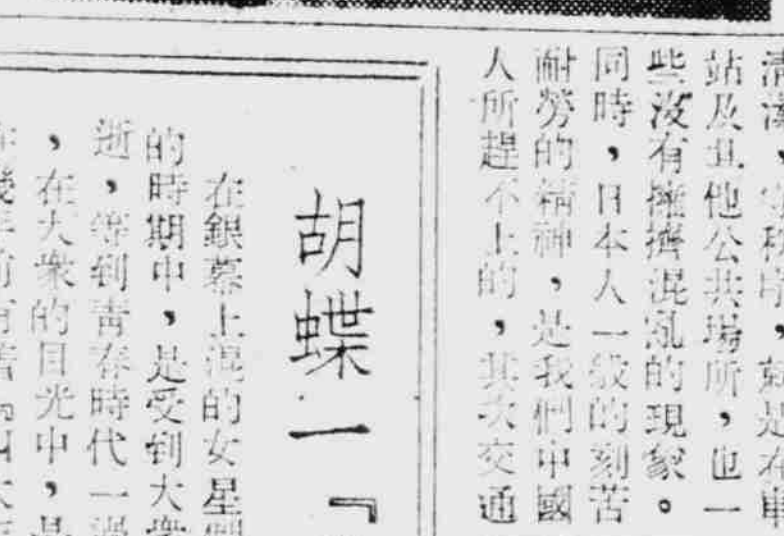 站及其他公共場所，也一
些沒有擁擠混亂的現象。
同時，日本人一般的刻苦
耐勞的精神，是我們中國
人所趕不上的，其次交通
胡蝶一『
在銀幕上混的女星
的時期中，是受到大衆
逝，等到青春時代一過
，在大衆的目光中，是